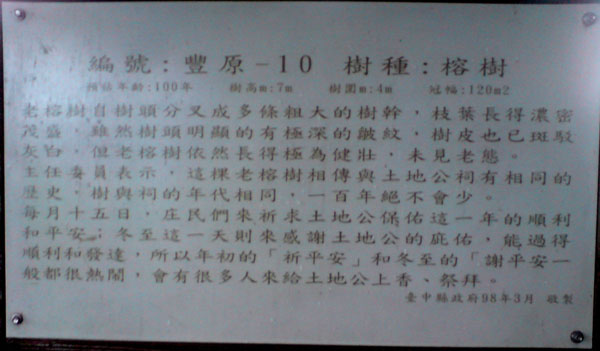 編號:豐原-10 樹種:榕樹
預估年齡:100年 樹高m:7m 樹圍m:4m 冠幅:120m2
老榕樹自樹頭分叉成多條粗大的樹幹，枝葉長得濃密
茂盛，雖然樹頭明顯的有極深的皺紋，樹皮也已斑駁
灰白，但老榕樹依然長得極為健壯，未見老態。
主任委員表示，這棵老榕樹相傳與土地公祠有相同的
歷史，樹與祠的年代相同，一百年絕不會少。
每月十五日，庄民們來祈求土地公保佑這一年的順利
和平安；冬至這一天則來感謝土地公的庇佑，能過得
順利和發達，所以年初的「祈平安」和冬至的「謝平安一
般都很熱鬧，會有很多人來給土地公上香、祭拜。
臺中縣政府98年3月 敬製